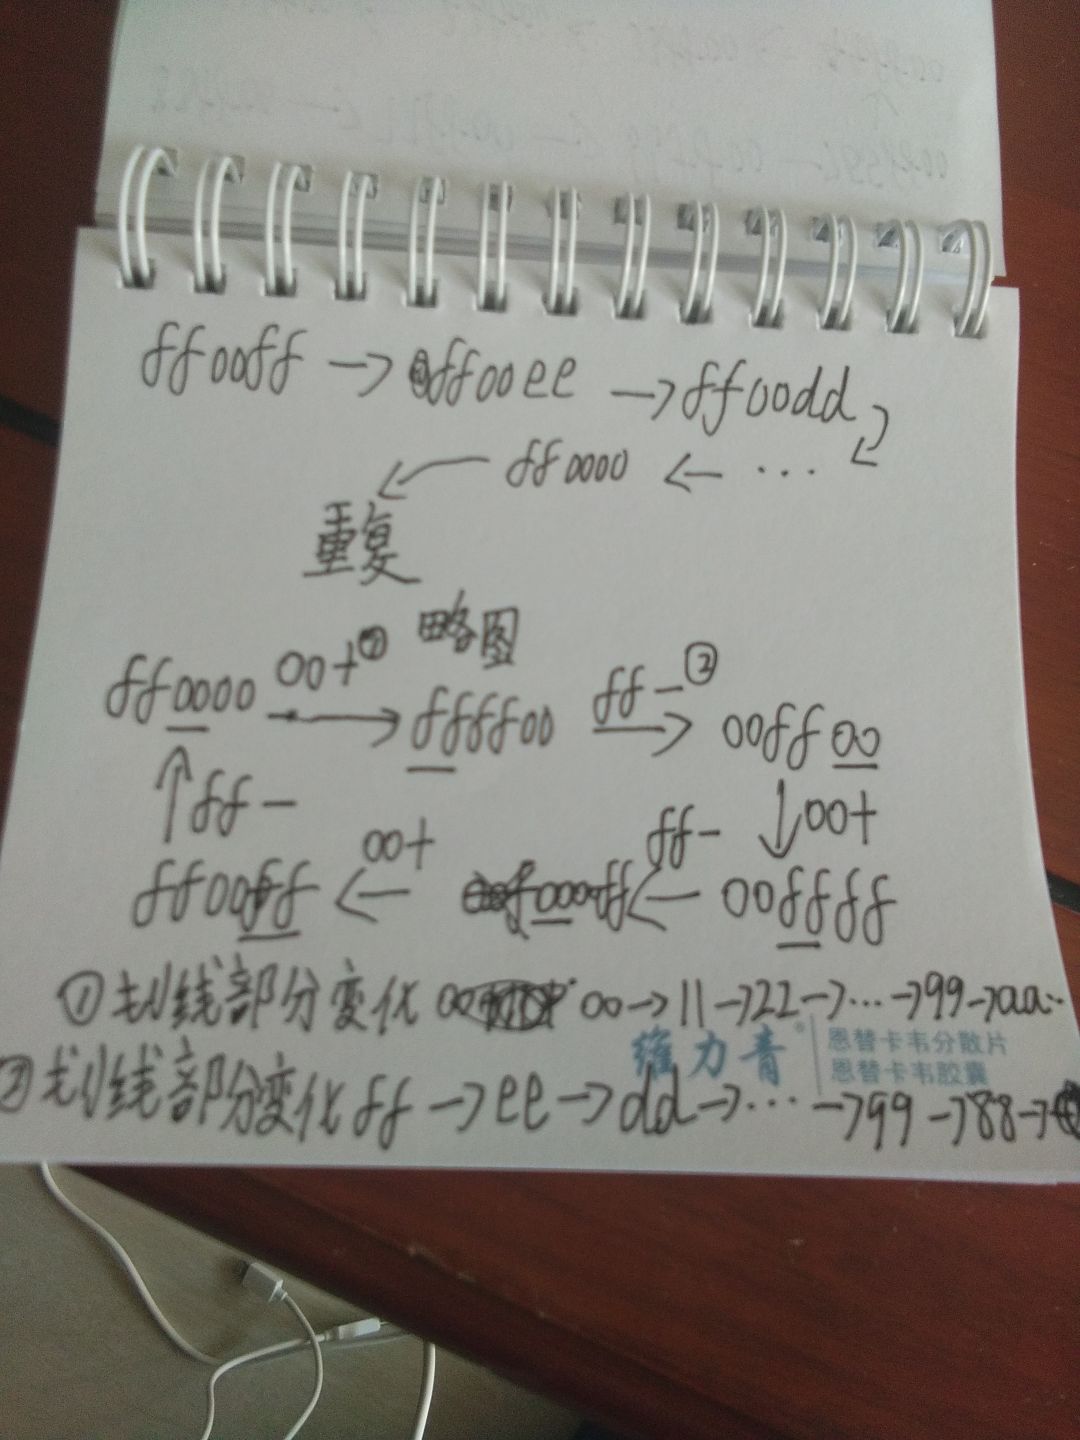 ff00ff → ff00ee → ff00dd
← ff0000 ← ...
重复
略图
ff0000 00+① → ffff00 ff-② → 00ff00
↑ff- 00+ ff- ↓00+
ff00ff ← 0000ff ← 00ffff
①划线部分变化 00 00→11→22→...→99→aa...
维力青® 恩替卡韦分散片
恩替卡韦胶囊
②划线部分变化 ff→ee→dd→...→99→88→